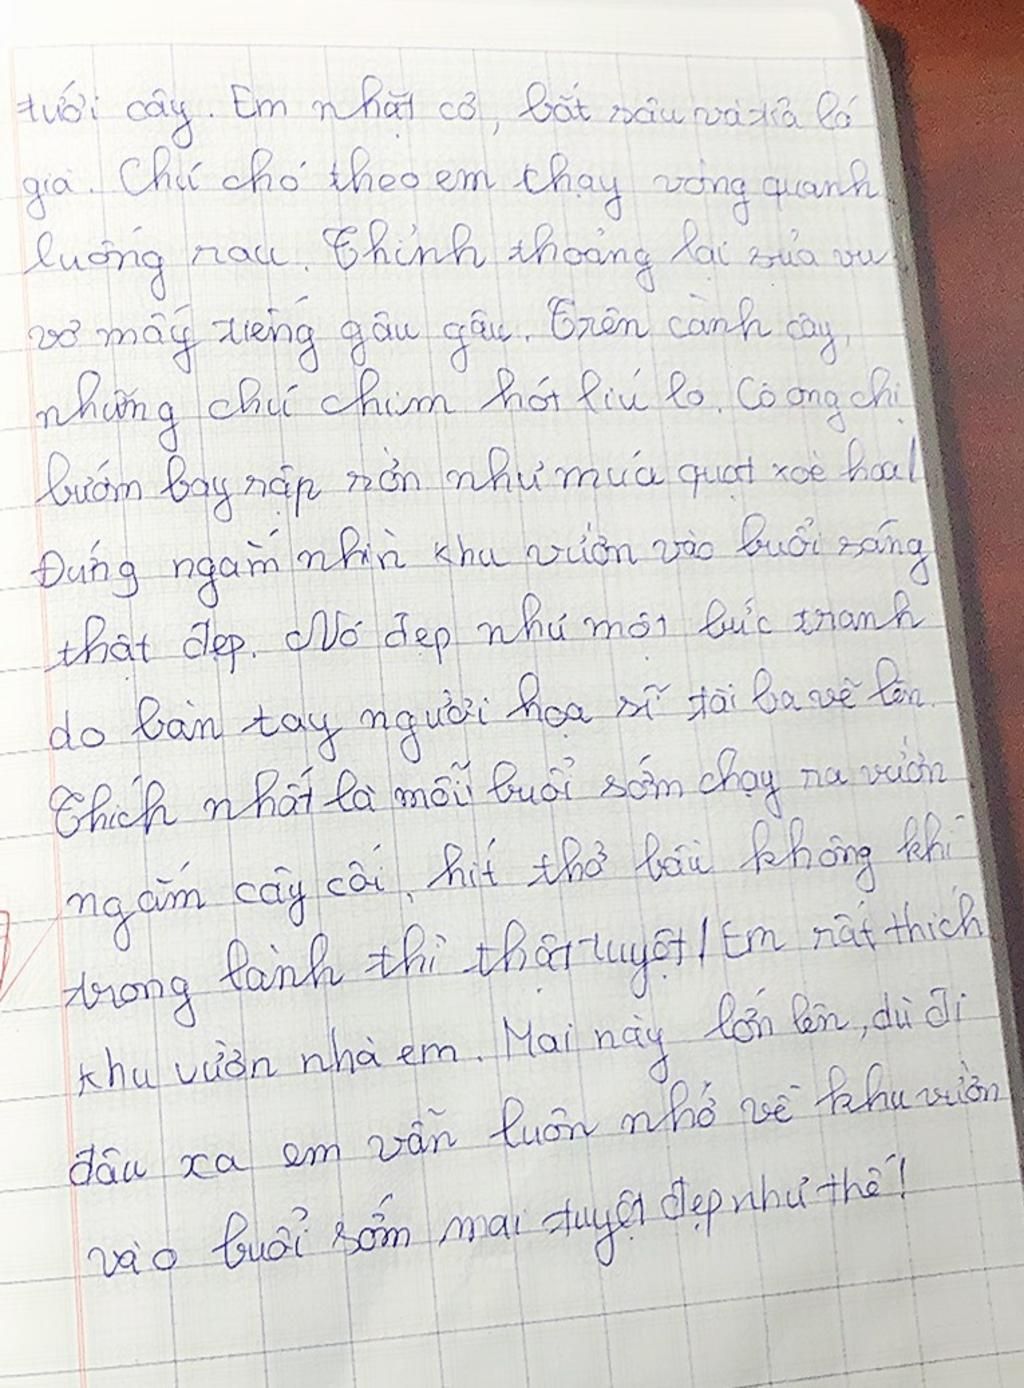 tưới cây. Em nhặt cỏ, bắt sâu và tỉa lá
già. Chú chó theo em chạy vòng quanh
luống rau. Thỉnh thoảng lại sủa vu
vơ mấy tiếng gâu gâu. Trên cành cây,
những chú chim hót líu lo. Cô ong chị
bướm bay rập rờn như múa quạt xoè hoa!
Đứng ngắm nhìn khu vườn vào buổi sáng
thật đẹp. Nó đẹp như một bức tranh
do bàn tay người họa sĩ tài ba vẽ lên.
Thích nhất là mỗi buổi sớm chạy ra vườn
ngắm cây cối, hít thở bầu không khí
trong lành thì thật tuyệt! Em rất thích
khu vườn nhà em. Mai này lớn lên, dù đi
đâu xa em vẫn luôn nhớ về khu vườn
vào buổi sớm mai tuyệt đẹp như thế!